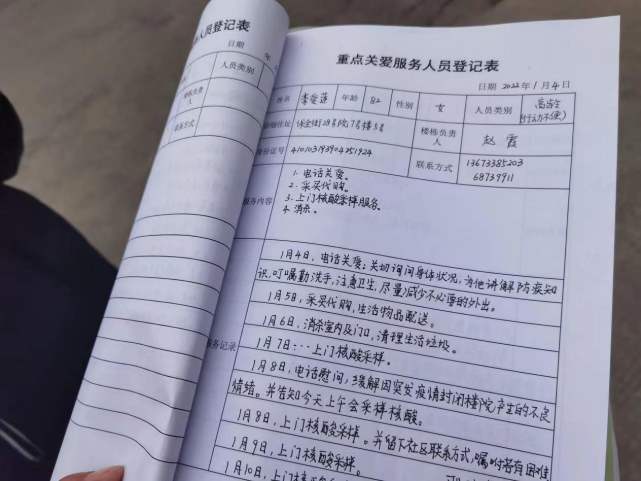 员登记表
日期 年
人员类别
楼栋负责人
联系方式
重点关爱服务人员登记表
日期 2022年1月4日
姓名 李爱莲 年龄 82 性别 女 人员类别 高龄(行动不便)
详细住址 保全街28号院7号楼5号 楼栋负责人 赵霞
身份证号 410103193904251924 联系方式 13673385203
68739911
服务内容
1. 电话关爱。
2. 采买代购。
3. 上门核酸采样服务。
4. 消杀。
服务记录
1月4日,电话关爱;关切询问身体状况,为他讲解防疫知
识,叮嘱勤洗手,注意卫生,尽量减少不必要的外出。
1月5日,采买代购,生活物品配送。
1月6日,消杀室内及门口,清理生活垃圾。
1月7日:··上门核酸采样。
1月8日,电话慰问,缓解因突发疫情封闭楼院产生的不良
情绪。并告知今天上午会采样核酸。
1月8日,上门核酸采样。并留下社区联系方式,嘱咐若有困难
1月9日,上门核酸采样。
1月10日,上门核